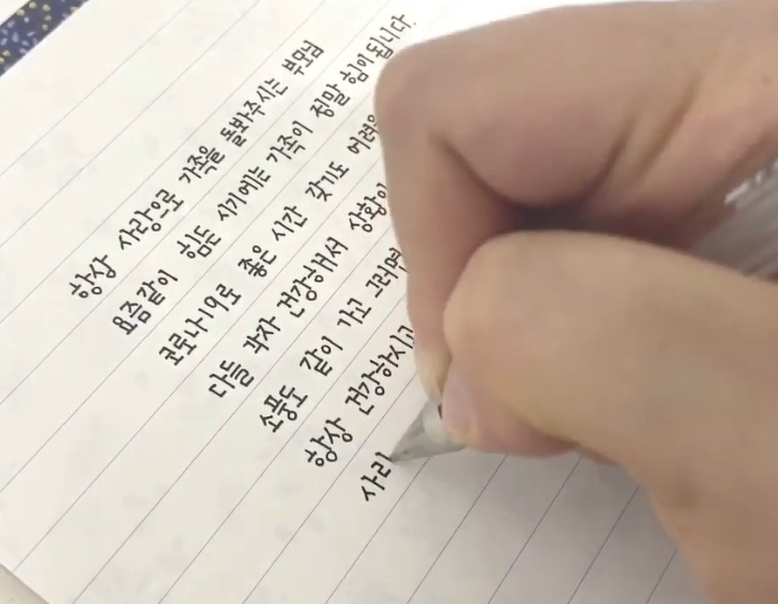 항상 사랑으로 가족을 돌봐주시는 부모님
요즘같이 힘든 시기에는 가족이 정말 힘이 됩니다.
코로나19로 좋은 시간 갖기도
다들 각자 건강해서
소풍도 같이 가고
항상 건강하시고